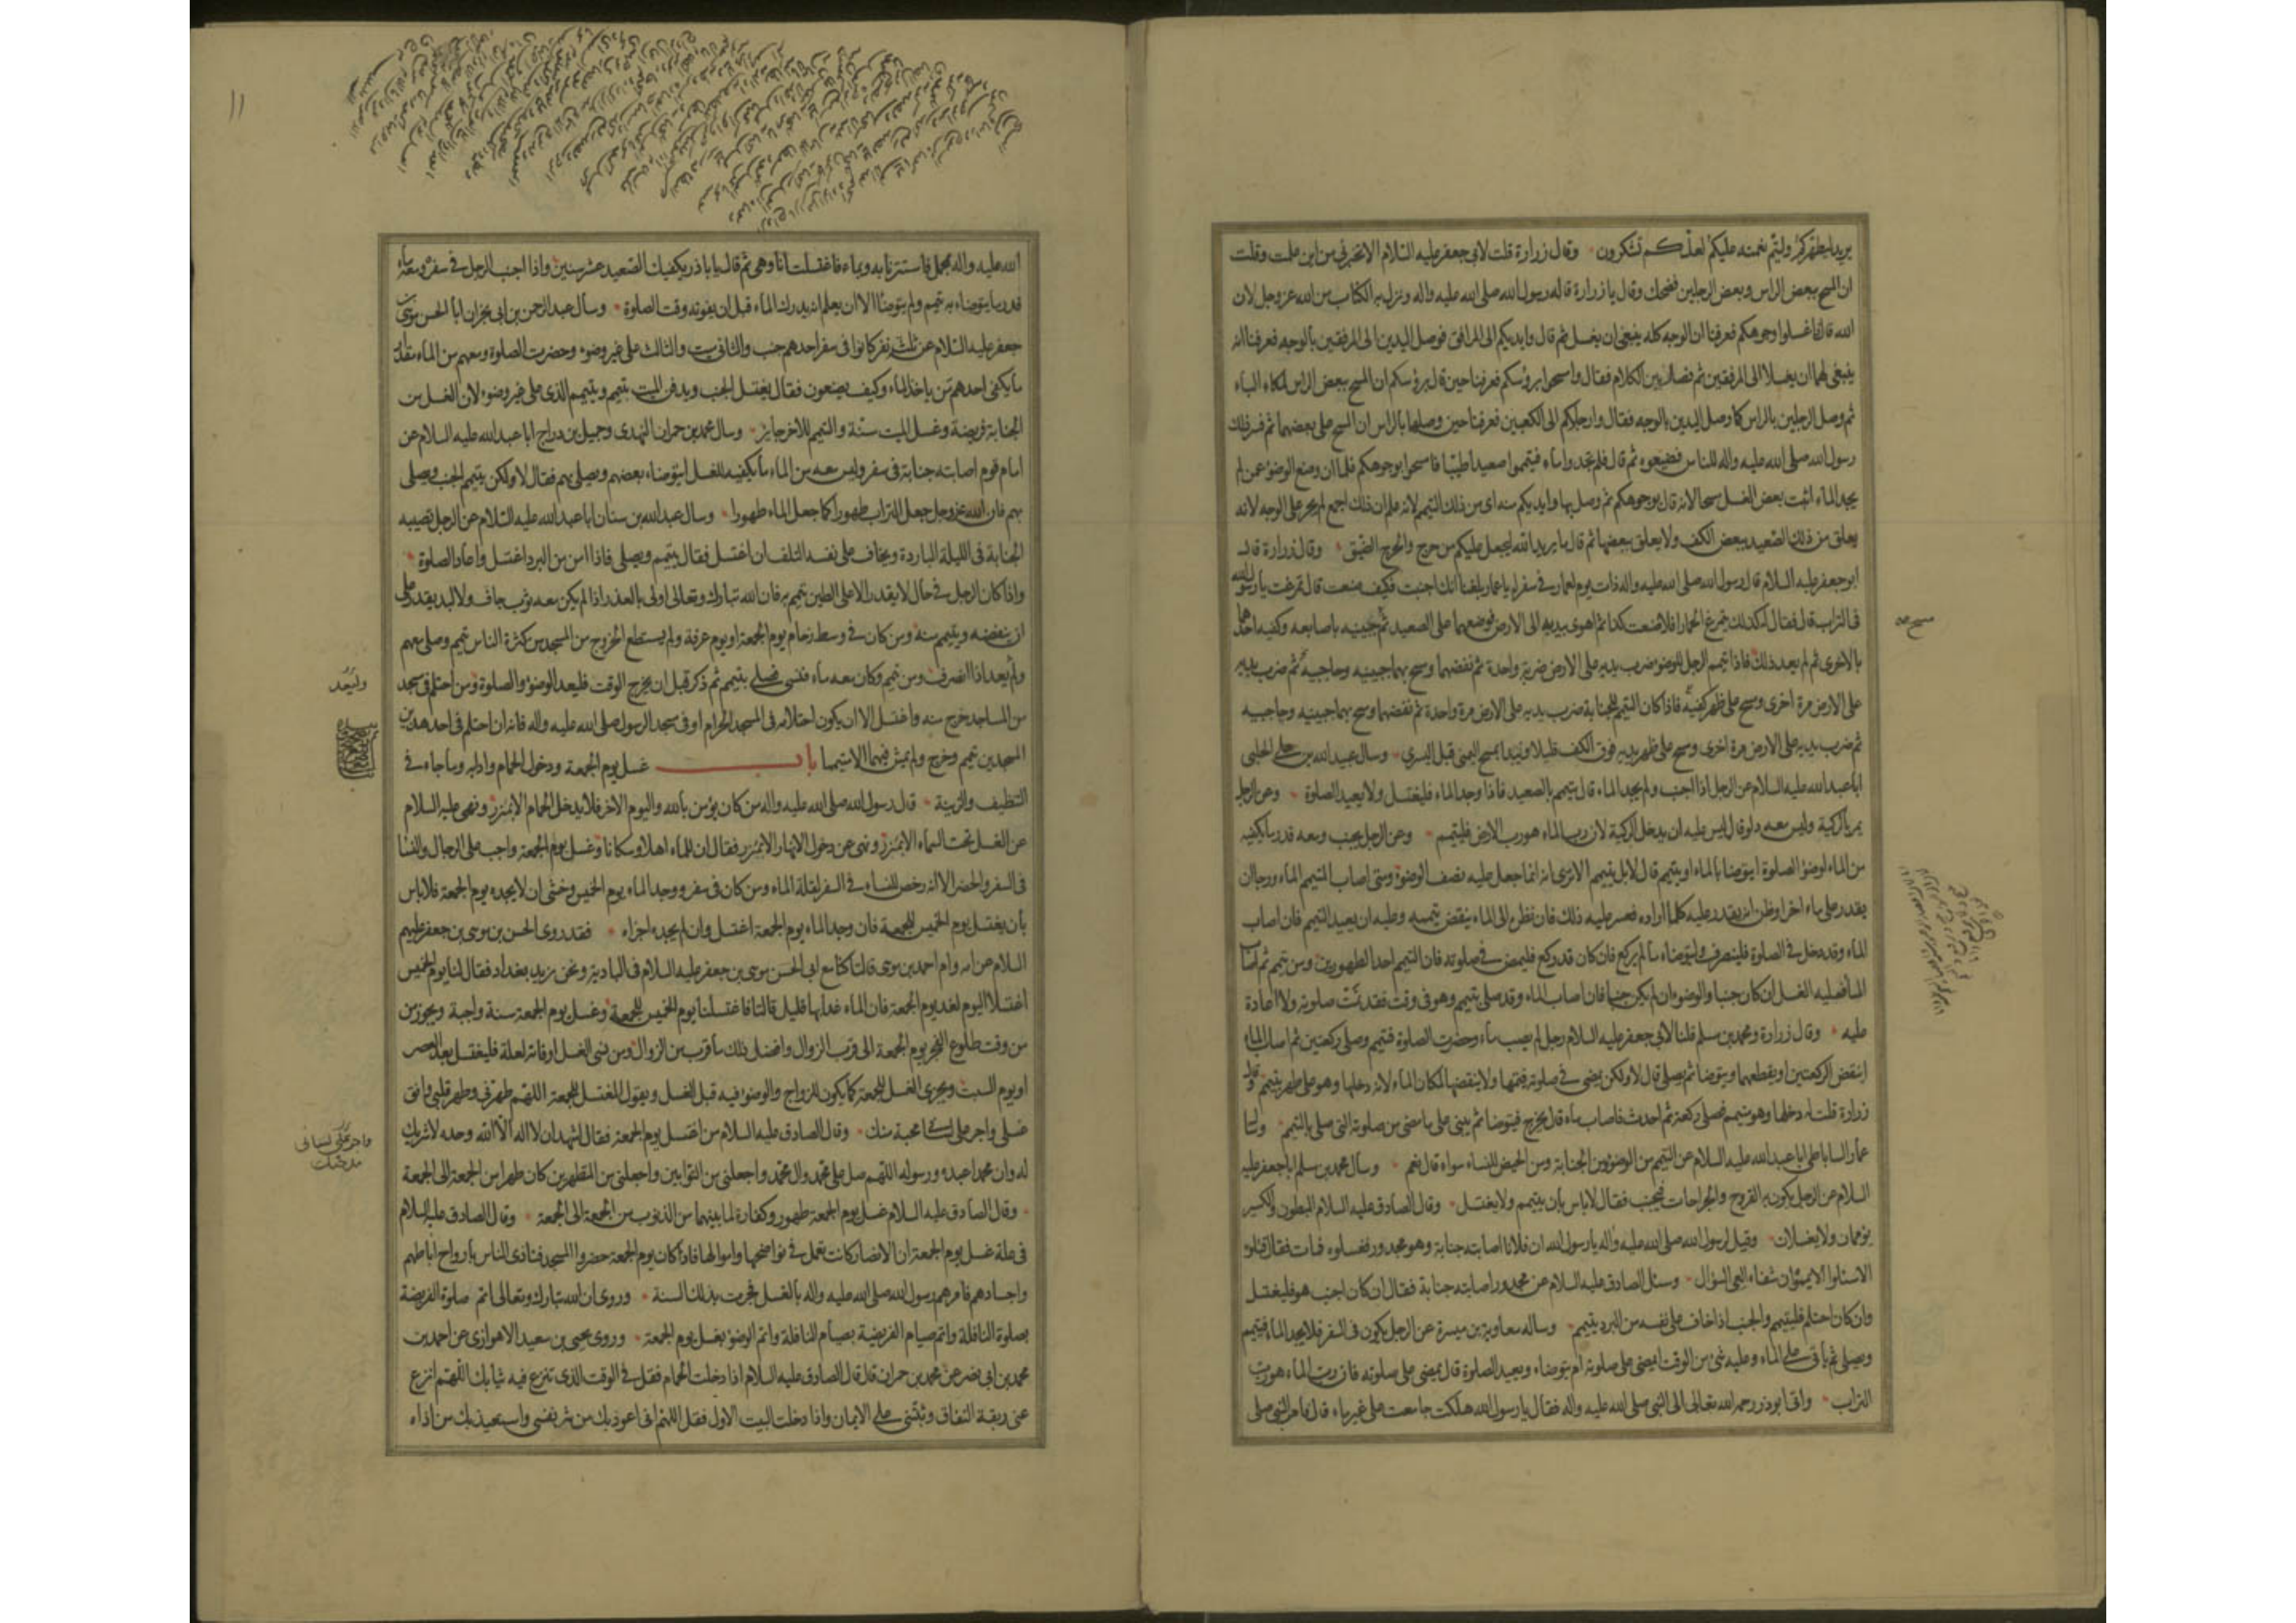 يريد ليطهركم وليتم نعمته عليكم لعلكم تشكرون وقال زرارة قلت لابي جعفر عليه السلام الا تخبرني من اين علمت وقلت
ان المسح ببعض الراس وبعض الرجلين فضحك وقال يا زرارة قاله رسول الله صلى الله عليه واله ونزل به الكتاب من الله عز وجل لان
الله قال فاغسلوا وجوهكم فعرفنا ان الوجه كله ينبغي ان يغسل ثم قال وايديكم الى المرافق فوصل اليدين الى المرفقين بالوجه فعرفنا انه
ينبغي لهما ان يغسلا الى المرفقين ثم فصل بين الكلام فقال وامسحوا برؤسكم فعرفنا حين قال برؤسكم ان المسح ببعض الراس لمكان الباء
ثم وصل الرجلين بالراس كما وصل اليدين بالوجه فقال وارجلكم الى الكعبين فعرفنا حين وصلهما بالراس ان المسح على بعضهما ثم فسر ذلك
رسول الله صلى الله عليه واله للناس فضيعوه ثم قال فلم تجدوا ماء فتيمموا صعيدا طيبا فامسحوا بوجوهكم فلما ان وضع الوضوء عمن لم
يجد الماء اثبت بعض الغسل مسحا لانه قال بوجوهكم ثم وصل بها وايديكم منه اى من ذلك التيمم لانه علم ان ذلك اجمع لم يجر على الوجه لانه
يعلق من ذلك الصعيد ببعض الكف ولا يعلق ببعضها ثم قال ما يريد الله ليجعل عليكم من حرج والحرج الضيق وقال زرارة قال
ابو جعفر عليه السلام قال رسول الله صلى الله عليه واله ذات يوم لعمار في سفر له يا عمار بلغنا انك اجنبت فكيف صنعت قال تمرغت يا رسول الله
في التراب قال فقال له كذلك يتمرغ الحمار افلا صنعت كذا ثم اهوى بيديه الى الارض فوضعهما على الصعيد ثم جبينيه باصابعه وكفيه احداهما
مسح صح
بالاخرى ثم لم يعد ذلك فاذا تيمم الرجل للوضوء ضرب بديه على الارض ضربة واحدة ثم نفضهما ومسح بهما جبينيه وحاجبيه ثم ضرب بيديه
على الارض مرة اخرى ومسح على ظهر كفيه فاذا كان التيمم للجنابة ضرب بديه على الارض مرة واحدة ثم نفضهما ومسح بهما جبينيه وحاجبيه
ثم ضرب بديه على الارض مرة اخرى ومسح على ظهر يديه فوق الكف قليلا ويبدا بمسح اليمنى قبل اليسرى وسال عبيد الله بن علي الحلبي
ابا عبد الله عليه السلام عن الرجل اذا اجنب ولم يجد الماء قال يتيمم بالصعيد فاذا وجد الماء فليغتسل ولا يعيد الصلوة وعن الرجل
يمر بالركية وليس معه دلو قال ليس عليه ان يدخل الركية لان رب الماء هو رب الارض فليتيمم وعن الرجل يجنب ومعه قدر ما يكفيه
من الماء لوضوء الصلوة ايتوضا بالماء او يتيمم قال لا بل يتيمم الا ترى انه انما جعل عليه نصف الوضوء ومتى اصاب المتيمم الماء ورجا ان
يقدر على ماء اخر او ظن انه يقدر عليه كلما اراده فعسر عليه ذلك فان نظره الى الماء ينقض تيممه وعليه ان يعيد التيمم فان اصاب
الماء وقد دخل في الصلوة فلينصرف وليتوضاء ما لم يركع فان كان قد ركع فليمض في صلوته فان التيمم احد الطهورين ومن تيمم ثم اصاب
الماء فعليه الغسل ان كان جنبا والوضوء ان لم يكن جنبا فان اصاب الماء وقد صلى بتيمم وهو في وقت فقد تمت صلوته ولا اعادة
عليه وقال زرارة ومحمد بن مسلم قلنا لابي جعفر عليه السلام رجل لم يصب ماء وحضرت الصلوة فتيمم وصلى ركعتين ثم اصاب الماء
اينقض الركعتين او يقطعهما ويتوضا ثم يصلي قال لا ولكن يمضي في صلوته فيتمها ولا ينقضها لمكان الماء لانه دخلها وهو على طهر بتيمم وقال
زرارة قلت له دخلها وهو متيمم فصلى ركعة ثم احدث فاصاب ماء قال يخرج فيتوضا ثم يبني على ما مضى من صلوته التي صلى بالتيمم وسال
عمار الساباطي ابا عبد الله عليه السلام عن التيمم من الوضوء ومن الجنابة ومن الحيض للنساء سواء قال نعم وسال محمد بن مسلم ابا جعفر عليه
السلام عن الرجل يكون به القروح والجراحات فيجنب فقال لا باس بان يتيمم ولا يغتسل وقال الصادق عليه السلام المبطون والكسير
يؤممان ولا يغسلان وقيل لرسول الله صلى الله عليه واله يا رسول الله ان فلانا اصابته جنابة وهو مجدور فغسلوه فمات فقال قتلوه
الا سئلوا الا يمموه ان شفاء العي السؤال وسئل الصادق عليه السلام عن مجدور اصابته جنابة فقال ان كان اجنب هو فليغتسل
وان كان احتلم فليتيمم والجنب اذا خاف على نفسه من البرد يتيمم وساله معاوية بن ميسرة عن الرجل يكون في السفر فلا يجد الماء فتيمم
وصلى ثم ياتي على الماء وعليه شئ من الوقت ايمضي على صلوته ام يتوضاء ويعيد الصلوة قال يمضي على صلوته فان رب الماء هو رب
التراب واتى ابو ذر رحمه الله تعالى الى النبي صلى الله عليه واله فقال يا رسول الله هلكت جامعت على غير ماء قال فامر النبي صلى
١١
الله عليه واله بمحمل فاستترنا به وبماء فاغتسلت انا وهي ثم قال يا با ذر يكفيك الصعيد عشر سنين واذا اجنب الرجل في سفر ومعه ماء
قدر ما يتوضاء به تيمم ولم يتوضا الا ان يعلم انه يدرك الماء قبل ان يفوته وقت الصلوة وسال عبد الرحمن بن ابي نجران ابا الحسن موسى بن
جعفر عليه السلام عن ثلثة نفر كانوا في سفر احدهم جنب والثاني ميت والثالث على غير وضوء وحضرت الصلوة ومعهم من الماء بقدر
ما يكفي احدهم من ياخذ الماء وكيف يصنعون فقال يغتسل الجنب ويدفن الميت بتيمم ويتيمم الذي على غير وضوء لان الغسل من
الجنابة فريضة وغسل الميت سنة والتيمم للاخر جايز وسال محمد بن حمران النهدي وجميل بن دراج ابا عبد الله عليه السلام عن
امام قوم اصابته جنابة في سفر وليس معه من الماء ما يكفيه للغسل ايتوضاء بعضهم ويصلي بهم فقال لا ولكن يتيمم الجنب ويصلي
بهم فان الله عز وجل جعل التراب طهورا كما جعل الماء طهورا وسال عبد الله بن سنان ابا عبد الله عليه السلام عن الرجل تصيبه
الجنابة في الليلة الباردة ويخاف على نفسه التلف ان اغتسل فقال يتيمم ويصلي فاذا امن من البرد اغتسل واعاد الصلوة
واذا كان الرجل في حال لا يقدر الا على الطين تيمم به فان الله تبارك وتعالى اولى بالعذر اذا لم يكن معه ثوب جاف ولا لبد يقدر على
ان ينفضه ويتيمم منه ومن كان في وسط زحام يوم الجمعة او يوم عرفة ولم يستطع الخروج من المسجد من كثرة الناس تيمم وصلى معهم
ولم يعد اذا انصرف ومن تيمم وكان معه ماء فنسي فصلى بتيمم ثم ذكر قبل ان يخرج الوقت فليعد الوضوء والصلوة ومن احتلم في مسجد
وليعد
من المساجد خرج منه واغتسل الا ان يكون احتلامه في المسجد الحرام او في مسجد الرسول صلى الله عليه واله فانه ان احتلم في احد هذين
المسجدين تيمم وخرج ولم يمش فيهما الا متيمما باب غسل يوم الجمعة ودخول الحمام وادابه وما جاء في
التنظيف والزينة قال رسول الله صلى الله عليه واله من كان يؤمن بالله واليوم الاخر فلا يدخل الحمام الا بمئزر ونهى عليه السلام
عن الغسل تحت السماء الا بمئزر ونهى عن دخول الانهار الا بمئزر فقال ان للماء اهلا وسكانا وغسل يوم الجمعة واجب على الرجال والنساء
في السفر والحضر الا انه رخص للنساء في السفر لقلة الماء ومن كان في سفر ووجد الماء يوم الخميس وخشي ان لا يجده يوم الجمعة فلا باس
بان يغتسل يوم الخميس للجمعة فان وجد الماء يوم الجمعة اغتسل وان لم يجده اجزاه فقد روى الحسن بن موسى بن جعفر عليهم
السلام عن امه وام احمد بن موسى قالتا كنا مع ابي الحسن موسى بن جعفر عليه السلام في البادية ونحن نريد بغداد فقال لنا يوم الخميس
اغتسلا اليوم لغد يوم الجمعة فان الماء غدا بها قليل قالتا فاغتسلنا يوم الخميس للجمعة وغسل يوم الجمعة سنة واجبة ويجوز من
من وقت طلوع الفجر يوم الجمعة الى قرب الزوال وافضل ذلك ما قرب من الزوال ومن نسي الغسل او فاته لعلة فليغتسل بعد العصر
او يوم السبت ويجزي الغسل للجمعة كما يكون للزواج والوضوء فيه قبل الغسل ويقول المغتسل للجمعة اللهم طهرني وطهر قلبي وانق
غسلي واجر على لساني محبة منك وقال الصادق عليه السلام من اغتسل يوم الجمعة فقال اشهد ان لا اله الا الله وحده لا شريك
واجر على لساني
مدحتك
له وان محمدا عبده ورسوله اللهم صل على محمد وال محمد واجعلني من التوابين واجعلني من المتطهرين كان طهرا من الجمعة الى الجمعة
وقال الصادق عليه السلام غسل يوم الجمعة طهور وكفارة لما بينهما من الذنوب من الجمعة الى الجمعة وقال الصادق عليه السلام
في علة غسل يوم الجمعة ان الانصار كانت تعمل في نواضحها واموالها فاذا كان يوم الجمعة حضروا المسجد فتاذى الناس بارواح اباطهم
واجسادهم فامرهم رسول الله صلى الله عليه واله بالغسل فجرت بذلك السنة وروي ان الله تبارك وتعالى اتم صلوة الفريضة
بصلوة النافلة واتم صيام الفريضة بصيام النافلة واتم الوضوء بغسل يوم الجمعة وروى يحيى بن سعيد الاهوازي عن احمد بن
محمد بن ابي نصر عن محمد بن حمران قال قال الصادق عليه السلام اذا دخلت الحمام فقل في الوقت الذي تنزع فيه ثيابك اللهم انزع
عني ربقة النفاق وثبتني على الايمان واذا دخلت البيت الاول فقل اللهم اني اعوذ بك من شر نفسي واستعيذ بك من اذاه